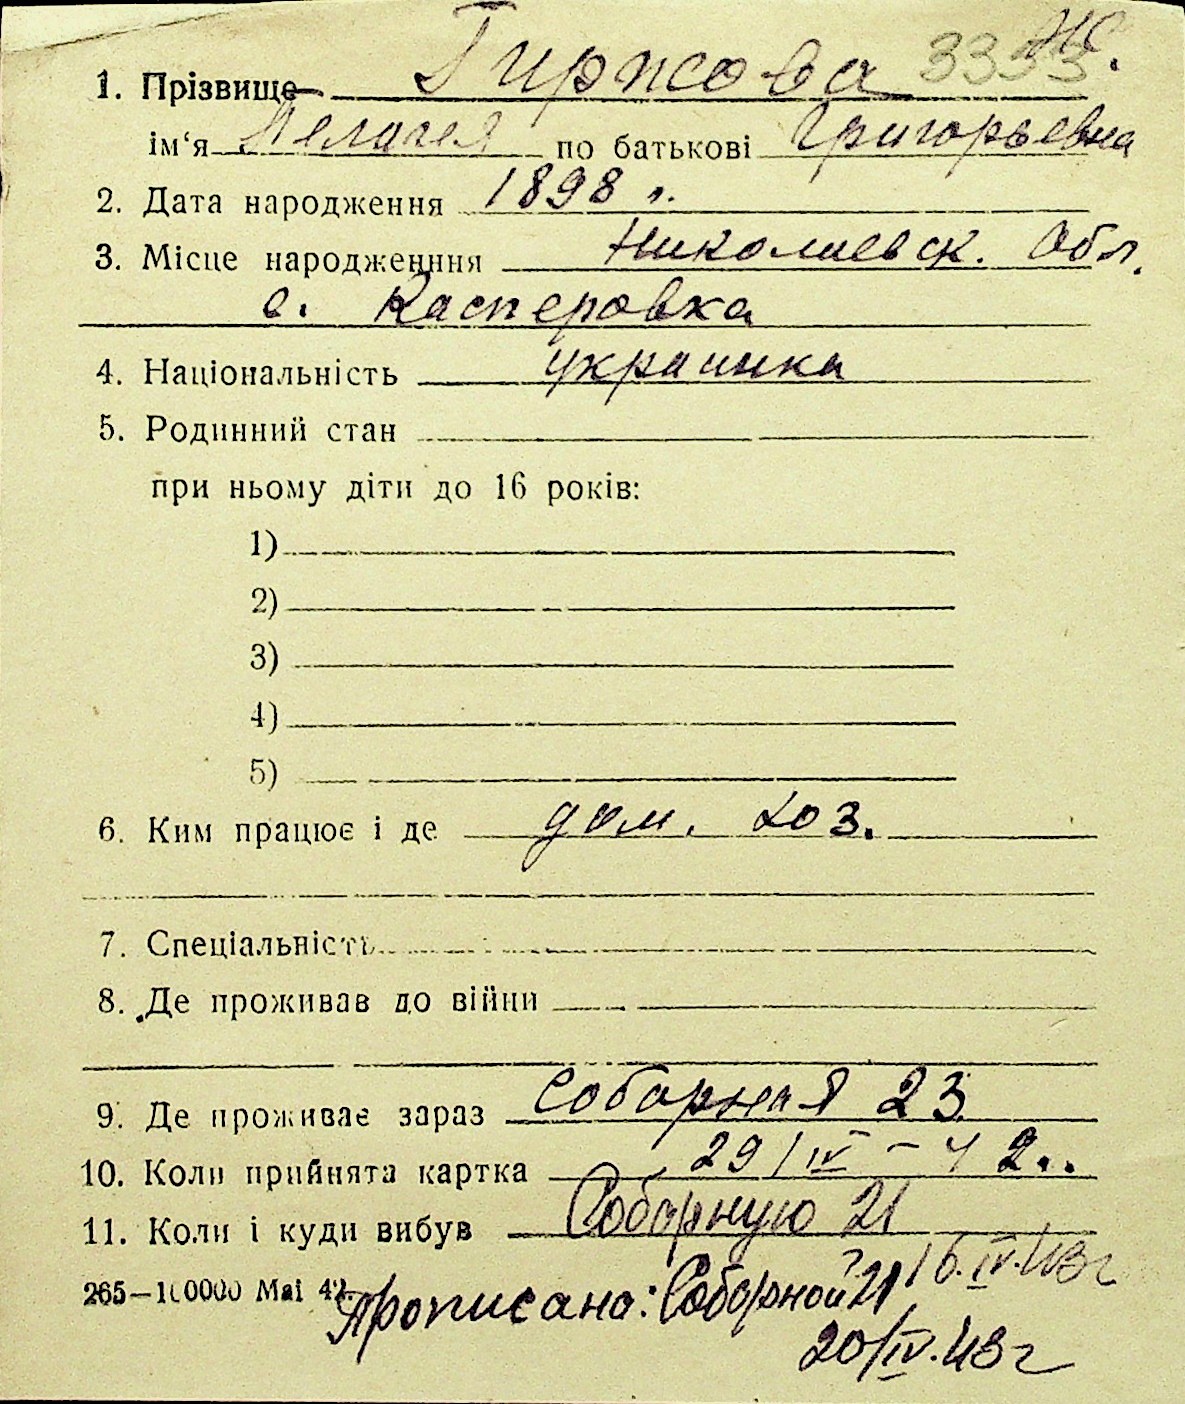 1. Прізвище Гиржова 3333
ім‘я Пелагея по батькові Григорьевна
2. Дата народження 1898 г.
3. Місце народженння Николаевск. Обл.
с. Касперовка
4. Національність украинка
5. Родинний стан
при ньому діти до 16 років:
1)
2)
3)
4)
5)
6. Ким працює і де дом. хоз.
7. Спеціальність
8. Де проживав до війни
9. Де проживає зараз Соборная 23
10. Коли прийнята картка 29/IV – 42..
11. Коли і куди вибув Соборную 21
16.IV.43г
265—100000 Mai 42
Прописана: Соборной 21
20/IV.43г